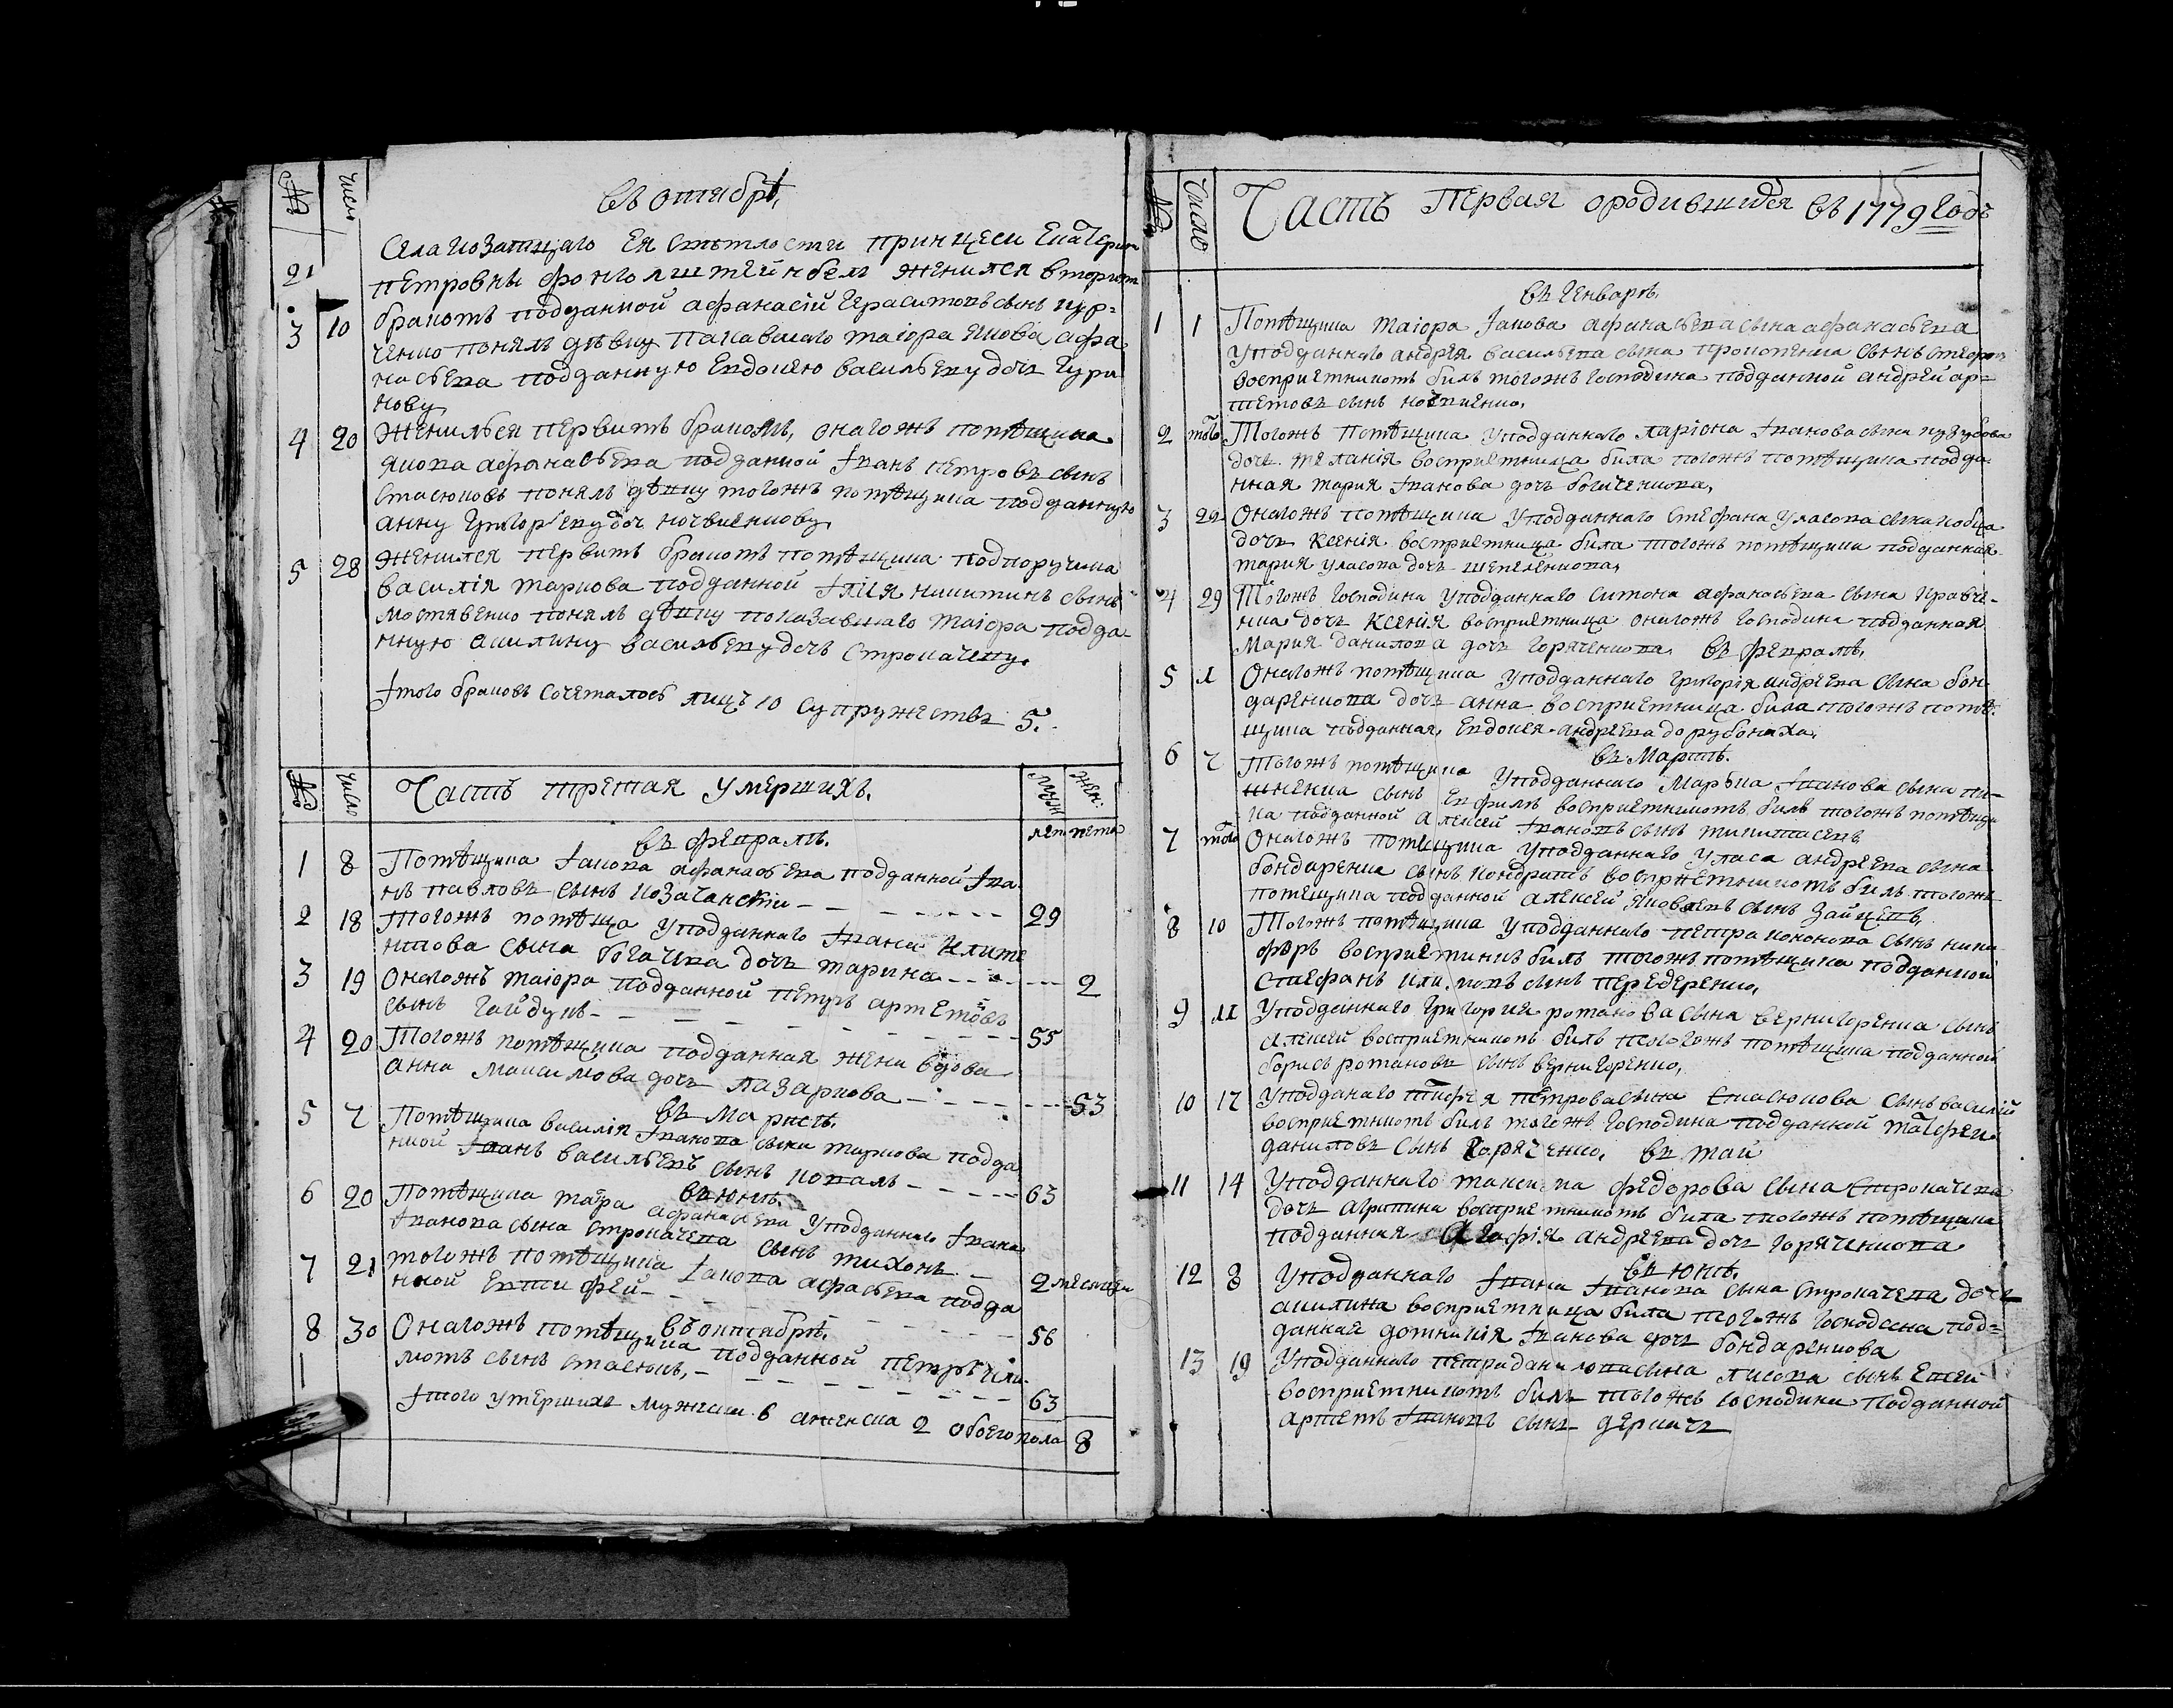 № число
въ октябрѣ,
21
села козачаго Ея свѣтлости принцеси Екатерин
петровны фонголштейнбекъ женился вторимъ
3 10 бракомъ подданной афанасій Герасимовъ сынъ кур-
ченко понялъ дѣвку показаного маіора якова афа
насьева подданную Евдокею васильеву дочь Гури
нову,
4 20 женился первимъ бракомъ, онагожъ помѣщика
якова афанасьева подданной Іванъ петровъ сынъ
стасюковъ понялъ дѣвку тогожъ помѣщика подданную
анну Григорьеву доч
5 28 женился первимъ бракомъ помѣщика подпоручика
василія маркова подданной Ілія никитинъ сынъ
понялъ дѣвку показаного маіора подда
нную акилину васильеву дочь строкачеву,
Ітого браковъ сочеталось лицъ 10 супружествъ 5.
№ число Часть третая умершихъ. муж жен:
въ февралѣ. лет лета
1 8 Помѣщика Іакова афанасьева подданной Іва
нъ павловъ сынъ козачанскіи 29
2 18 Тогожъ помѣща уподданнаго Івана климе
нтова сына богачка дочь марина 2
3 19 Онагожъ маіора подданной петръ артемовъ
сынъ гайдукъ 55
4 20 Тогожъ помѣщика подданная жена вдова
анна максимова дочь лазаркова 53
въ Мартѣ,
5 7 Помѣщика василія Іванова сына маркова подда
нной Іванъ васильевъ сынъ коваль 63
въ юнѣ,
6 20 Помѣщика маіора афанасьева уподданнаго Івана
Іванова сына строкачева сынъ тихонъ 2 месяцеи
7 21 тогожъ помѣщика Іакова афасьева подда
нной Евтифей 56
въ октябрѣ,
8 30 Онагожъ помѣщика подданной петръ
сынъ стасюкъ, 63
Ітого умершихъ мужска 6 аженска 2 обоего пола 8
№ Число Часть первая ородившихся въ 1779 годѣ
въ Генварѣ,
1 1 Помѣщика маіора Іакова афанасьева сына афанасьева
уподданнаго андрея васильева сына прокопенка сынъ
восприемникомъ билъ тогожъ господина подданной андрей ар-
темовъ сынъ
2 того Тогожъ Помѣщика уподданнаго ларіона Іванова сына
дочь меланія восприемница била тогожъ помѣщика подда
нная мария Іванова дочь
3 22 Онагожъ помѣщика уподданнаго стефана уласова сына кобца
дочь Ксенія восприемница била тогожъ помѣщика подданная
мария уласова дочь шепеленкова,
4 29 Тогожъ господина уподданнаго симона афанасьева сына кравче-
нка дочь Ксенія восприемница онагожъ господина подданная
Мария данилова дочь горяченкова. въ февралѣ,
5 11 Онагожъ помѣщика уподданнаго григорія андреева сына бон-
даренкова дочь анна восприемница била тогожъ помѣ-
щика подданная, Евдокея андреева
въ Мартѣ.
6 7 Тогожъ помѣщика уподданнаго Марка Іванова сына
сынъ Евфимъ восприемникомъ билъ тогожъ помѣщи
ка подданной алексей Івановъ сынъ
7 того Онагожъ помѣщика уподданнаго уласа андреева сына
бондаренка сынъ кондратъ восприемникомъ билъ тогожъ
помещика подданной алексей яковлевъ сынъ зайцевъ,
8 10 Тогожъ помѣщика уподданнаго петра кононова сынъ ники
форъ восприемникъ билъ тогожъ помѣщика подданной
стефанъ сынъ передеренко,
9 11 Уподданнаго Григория романова сына вернигоренка сынъ
алексей восприемникомъ билъ тогожъ помѣщика подданной
борисъ романовъ сынъ вернигоренко,
10 17 Уподданаго петрова сына стасюкова сынъ василій
восприемникомъ билъ тогожъ господина подданной матфеи
даниловъ сынъ горяченко. въ маи
11 14 Уподданнаго максима федорова сына строкачева
дочь агрипина восприемникомъ била тогожъ помѣщика
подданная агафія андреева дочь горяченкова
въ юнѣ.
12 8 Уподданнаго Івана Іванова сына строкачева дочь
акилина восприемница била тогожъ господина под-
данная домникія Іванова дочь бондаренкова
13 19 Уподданнаго петра данилова сына лисова сынъ
восприемникомъ билъ тогожъ господина подданной
артемъ Івановъ сынъ деркачъ